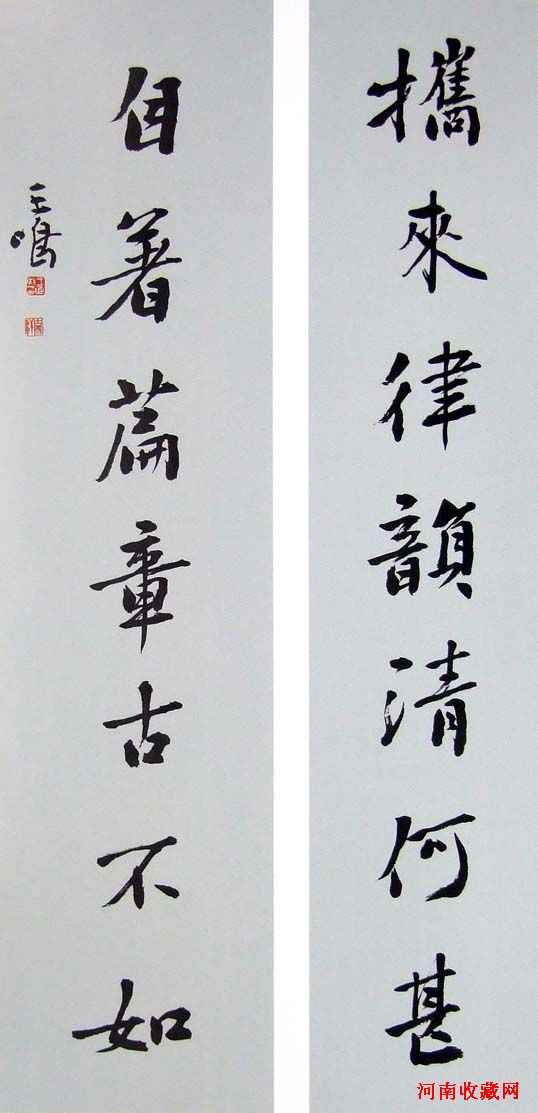 攜來律韻清何甚
自著篇章古不如
王鳴
河南收藏网